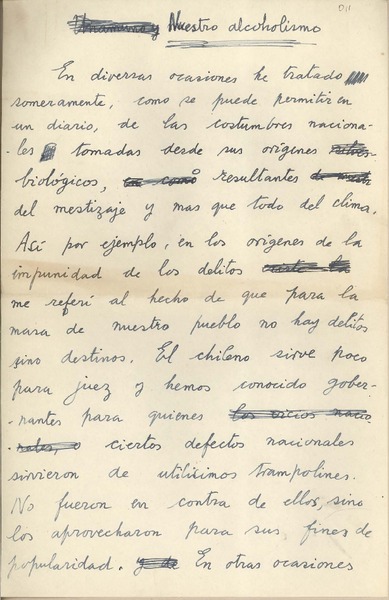 Nuestro alcoholismo
En diversas ocasiones he tratado
someramente, como se puede permitir en
un diario, de las costumbres naciona-
-les tomadas desde sus orígenes
biológicos, resultantes
del mestizaje y mas que todo del clima.
Así por ejemplo, en los orígenes de la
impunidad de los delitos
me referí al hecho de que para la
masa de nuestro pueblo no hay delitos
sino destinos. El chileno sirve poco
para juez y hemos conocido gober-
-nantes para quienes los vicios nacio-
-nales, o ciertos defectos nacionales
sirvieron de utilísimos trampolines.
No fueron en contra de ellos, sino
los aprovecharon para sus fines de
popularidad. y de En otras ocasiones